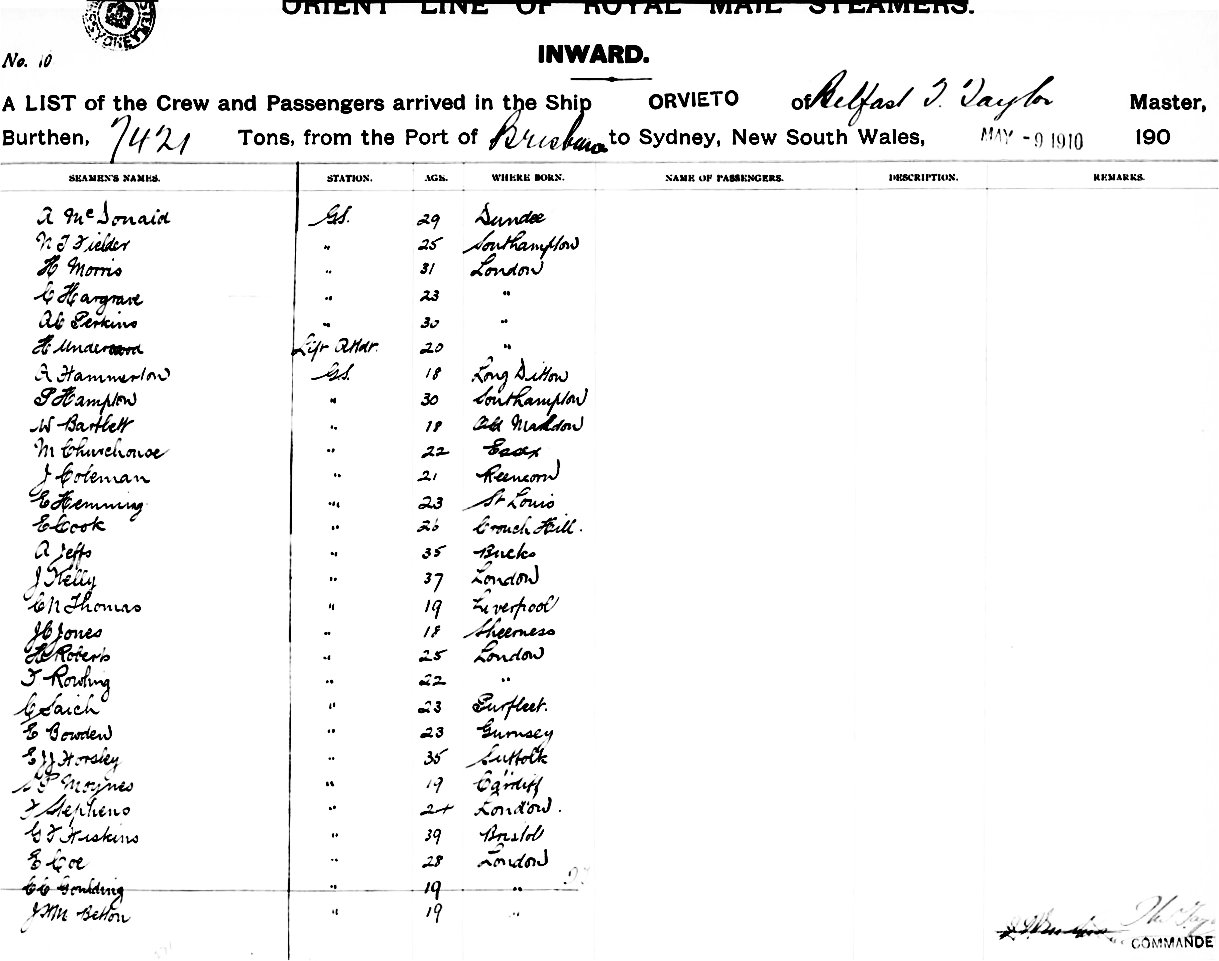 ORIENT LINE OF ROYAL MAIL STEAMERS.
SYDNEY
No. 10
INWARD.
A LIST of the Crew and Passengers arrived in the Ship ORVIETO of Belfast T. Taylor Master,
Burthen, 7421 Tons, from the Port of Brisbane to Sydney, New South Wales, MAY -9 1910 190
SEAMEN'S NAMES. STATION. AGE. WHERE BORN. NAME OF PASSENGERS. DESCRIPTION. REMARKS.
A McDonald GS. 29 Dundee
N J Fielder " 25 Southampton
H Morris " 31 London
C Hargrave " 23 "
AC Perkins " 30 "
H Underwood Lift Attdr. 20 "
A Hammerton GS. 18 Long Ditton
P Hampton " 30 Southampton
W Bartlett " 18 Old Maldon
M Churchouse " 22 Essex
J Coleman " 21 Reencorn
E Hemming " 23 St Louis
E Cook " 26 Crouch Hill.
A Jeffs " 35 Bucks
J Kelly " 37 London
C N Thomas " 19 Liverpool
JC Jones " 18 Sheerness
H Roberts " 25 London
F Rowling " 22 "
C Saich " 23 Purfleet.
E Bowden " 23 Gurnsey
E JJ Horsley " 35 Suffolk
P Moynes " 19 Cardiff
F Stephens " 24 London.
G F Hiskins " 39 Bristol
E Coe " 28 London
CC Goulding " 19 "
JHM Betton " 19 "
COMMANDE